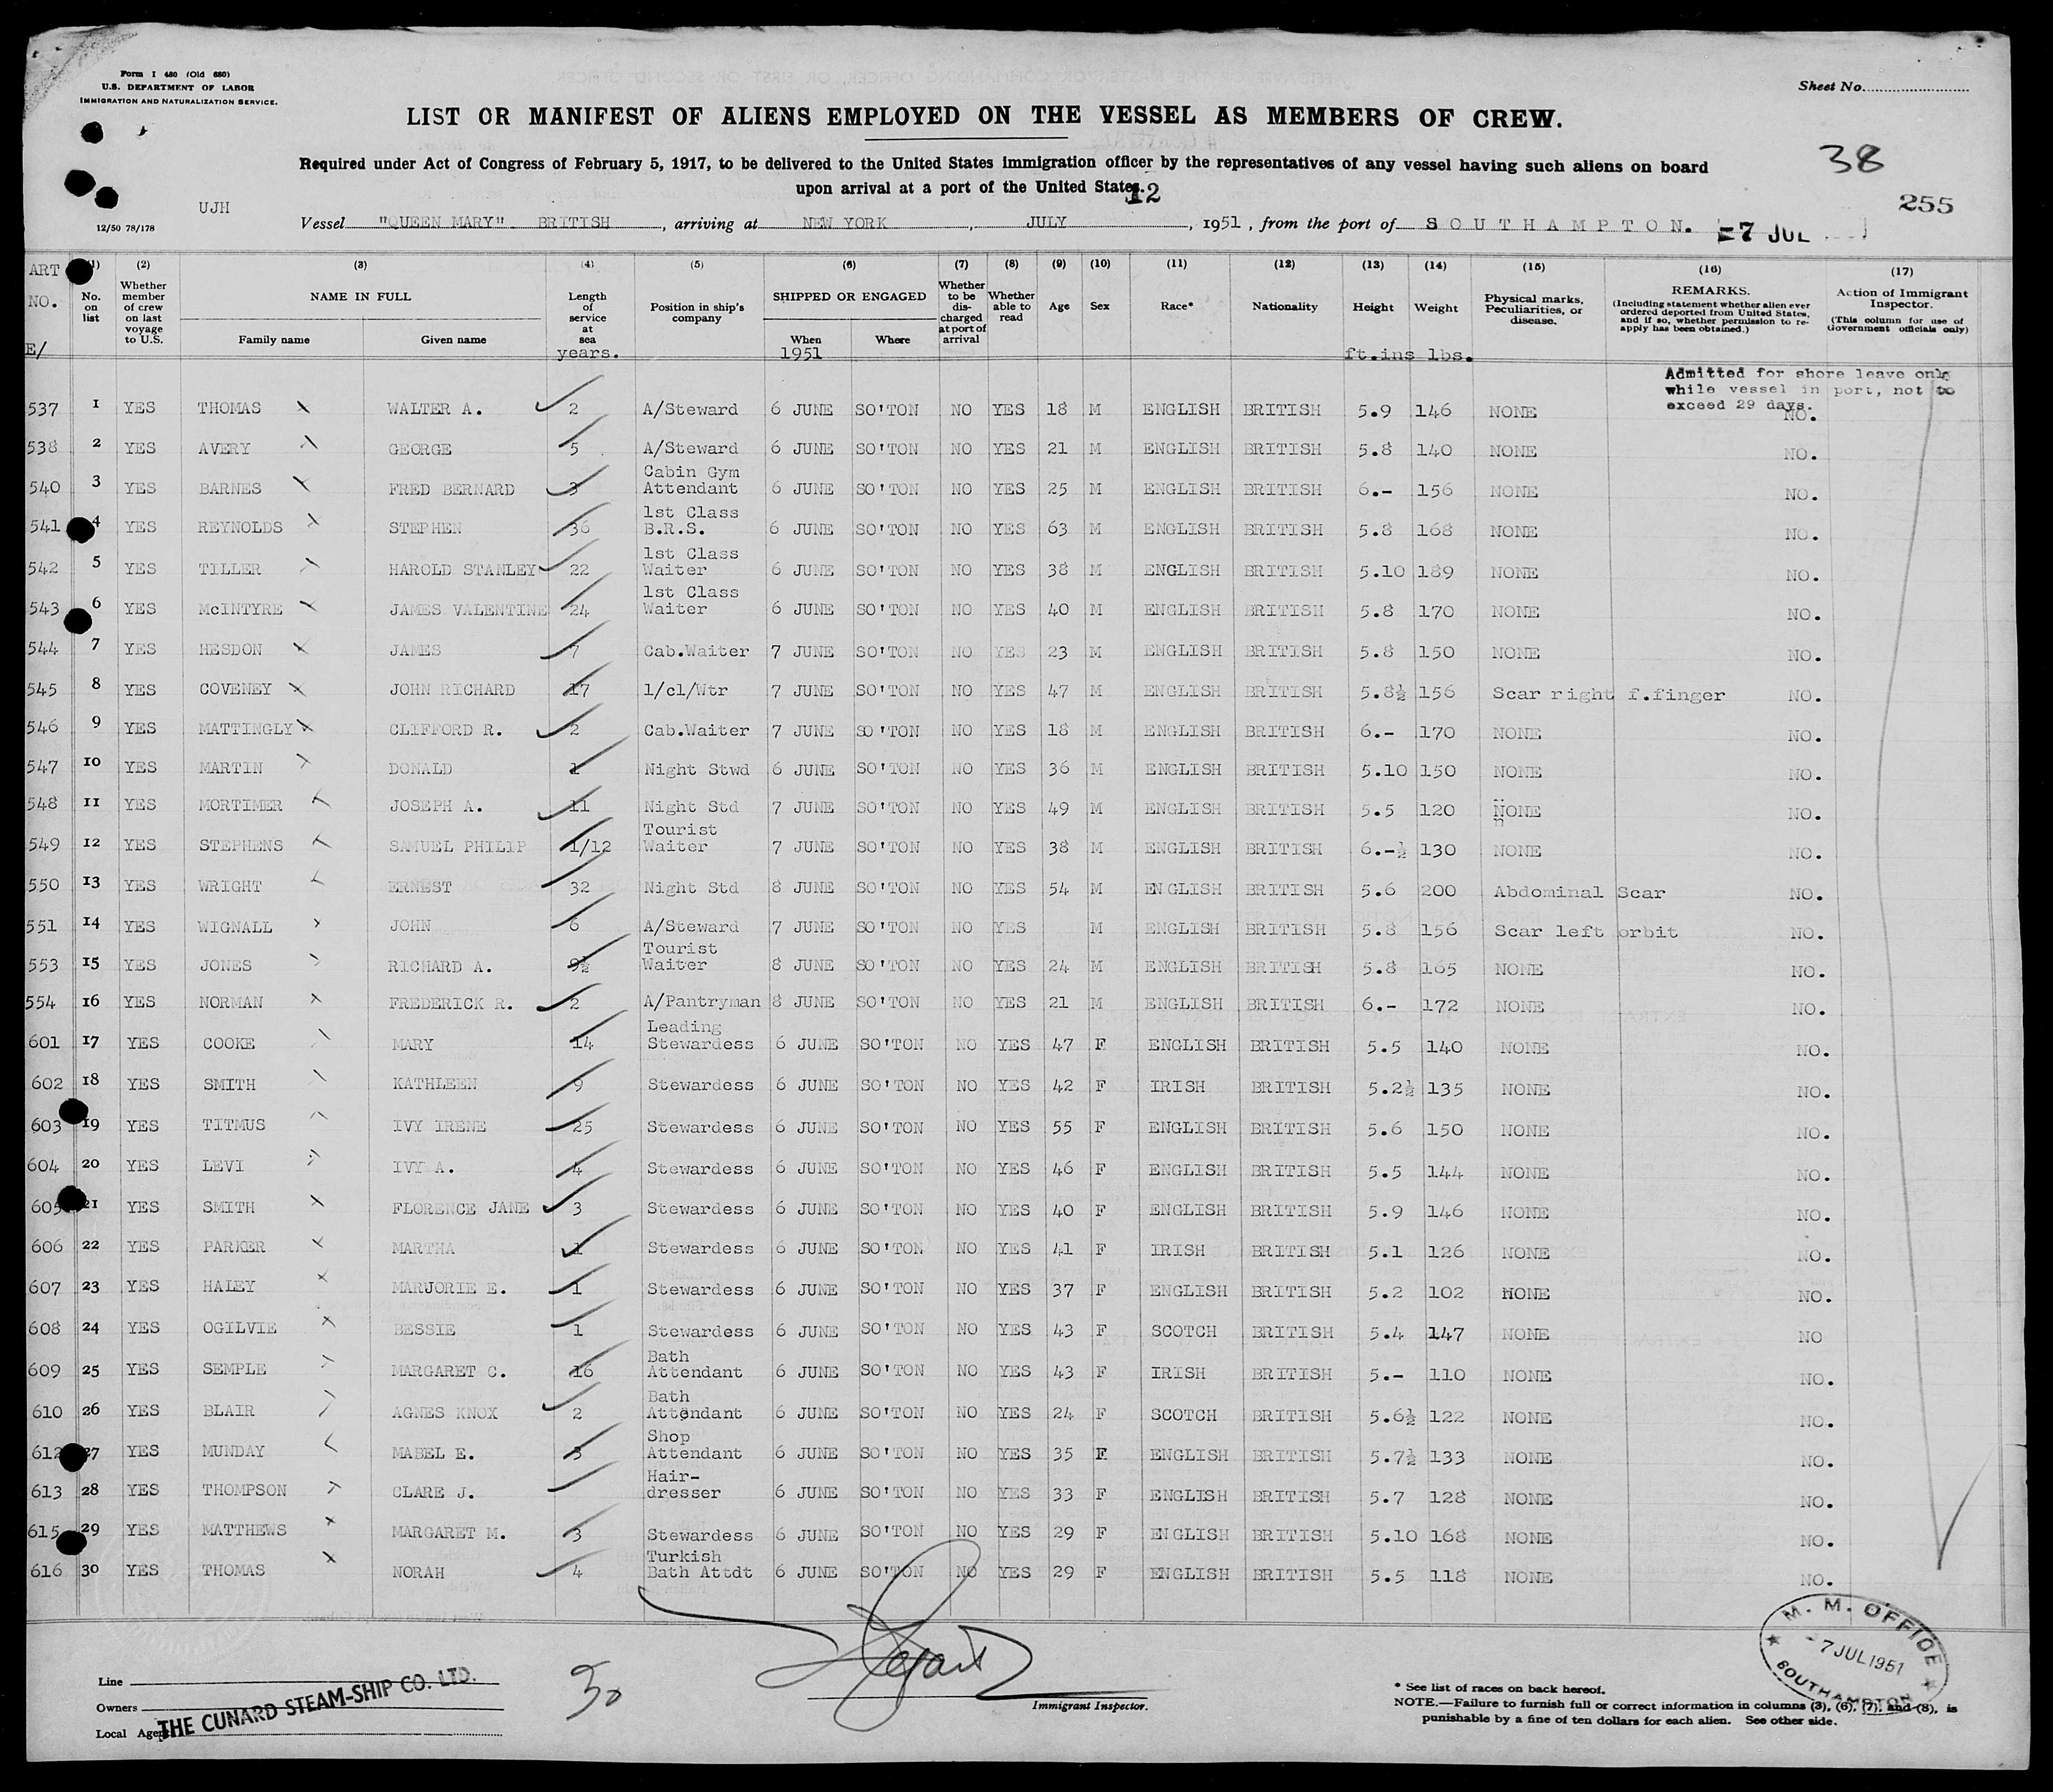 Form I 480 (Old 680)
U.S. DEPARTMENT OF LABOR
IMMIGRATION AND NATURALIZATION SERVICE.
Sheet No.
LIST OR MANIFEST OF ALIENS EMPLOYED ON THE VESSEL AS MEMBERS OF CREW.
Required under Act of Congress of February 5, 1917, to be delivered to the United States immigration officer by the representatives of any vessel having such aliens on board
upon arrival at a port of the United States.
38
255
UJH
12/50 78/178
Vessel "QUEEN MARY" BRITISH, arriving at NEW YORK, JULY 12, 1951, from the port of SOUTHAMPTON. -7 JUL
ART NO. E/ (1) No. on list (2) Whether member of crew on last voyage to U.S. (3) NAME IN FULL Family name Given name (4) Length of service at sea years. (5) Position in ship's company (6) SHIPPED OR ENGAGED When 1951 Where (7) Whether to be discharged at port of arrival (8) Whether able to read (9) Age (10) Sex (11) Race* (12) Nationality (13) Height ft.ins (14) Weight lbs. (15) Physical marks, Peculiarities, or disease. (16) REMARKS. (Including statement whether alien ever ordered deported from United States, and if so, whether permission to re-apply has been obtained.) (17) Action of Immigrant Inspector. (This column for use of Government officials only)
Admitted for shore leave only
while vessel in port, not to
exceed 29 days.
537 1 YES THOMAS WALTER A. 2 A/Steward 6 JUNE SO'TON NO YES 18 M ENGLISH BRITISH 5.9 146 NONE NO.
538 2 YES AVERY GEORGE 5 A/Steward 6 JUNE SO'TON NO YES 21 M ENGLISH BRITISH 5.8 140 NONE NO.
540 3 YES BARNES FRED BERNARD 3 Cabin Gym Attendant 6 JUNE SO'TON NO YES 25 M ENGLISH BRITISH 6.- 156 NONE NO.
541 4 YES REYNOLDS STEPHEN 36 1st Class B.R.S. 6 JUNE SO'TON NO YES 63 M ENGLISH BRITISH 5.8 168 NONE NO.
542 5 YES TILLER HAROLD STANLEY 22 1st Class Waiter 6 JUNE SO'TON NO YES 38 M ENGLISH BRITISH 5.10 189 NONE NO.
543 6 YES McINTYRE JAMES VALENTINE 24 1st Class Waiter 6 JUNE SO'TON NO YES 40 M ENGLISH BRITISH 5.8 170 NONE NO.
544 7 YES HESDON JAMES 7 Cab.Waiter 7 JUNE SO'TON NO YES 23 M ENGLISH BRITISH 5.8 150 NONE NO.
545 8 YES COVENEY JOHN RICHARD 17 1/cl/Wtr 7 JUNE SO'TON NO YES 47 M ENGLISH BRITISH 5.8½ 156 Scar right f.finger NO.
546 9 YES MATTINGLY CLIFFORD R. 2 Cab.Waiter 7 JUNE SO'TON NO YES 18 M ENGLISH BRITISH 6.- 170 NONE NO.
547 10 YES MARTIN DONALD 1 Night Stwd 6 JUNE SO'TON NO YES 36 M ENGLISH BRITISH 5.10 150 NONE NO.
548 11 YES MORTIMER JOSEPH A. 11 Night Std 7 JUNE SO'TON NO YES 49 M ENGLISH BRITISH 5.5 120 NONE NO.
549 12 YES STEPHENS SAMUEL PHILIP 1/12 Tourist Waiter 7 JUNE SO'TON NO YES 38 M ENGLISH BRITISH 6.-½ 130 NONE NO.
550 13 YES WRIGHT ERNEST 32 Night Std 8 JUNE SO'TON NO YES 54 M ENGLISH BRITISH 5.6 200 Abdominal Scar NO.
551 14 YES WIGNALL JOHN 6 A/Steward 7 JUNE SO'TON NO YES M ENGLISH BRITISH 5.8 156 Scar left orbit NO.
553 15 YES JONES RICHARD A. 9½ Tourist Waiter 8 JUNE SO'TON NO YES 24 M ENGLISH BRITISH 5.8 165 NONE NO.
554 16 YES NORMAN FREDERICK R. 2 A/Pantryman 8 JUNE SO'TON NO YES 21 M ENGLISH BRITISH 6.- 172 NONE NO.
601 17 YES COOKE MARY 14 Leading Stewardess 6 JUNE SO'TON NO YES 47 F ENGLISH BRITISH 5.5 140 NONE NO.
602 18 YES SMITH KATHLEEN 9 Stewardess 6 JUNE SO'TON NO YES 42 F IRISH BRITISH 5.2½ 135 NONE NO.
603 19 YES TITMUS IVY IRENE 25 Stewardess 6 JUNE SO'TON NO YES 55 F ENGLISH BRITISH 5.6 150 NONE NO.
604 20 YES LEVI IVY A. 4 Stewardess 6 JUNE SO'TON NO YES 46 F ENGLISH BRITISH 5.5 144 NONE NO.
605 21 YES SMITH FLORENCE JANE 3 Stewardess 6 JUNE SO'TON NO YES 40 F ENGLISH BRITISH 5.9 146 NONE NO.
606 22 YES PARKER MARTHA 1 Stewardess 6 JUNE SO'TON NO YES 41 F IRISH BRITISH 5.1 126 NONE NO.
607 23 YES HALEY MARJORIE E. 1 Stewardess 6 JUNE SO'TON NO YES 37 F ENGLISH BRITISH 5.2 102 NONE NO.
608 24 YES OGILVIE BESSIE 1 Stewardess 6 JUNE SO'TON NO YES 43 F SCOTCH BRITISH 5.4 147 NONE NO
609 25 YES SEMPLE MARGARET C. 16 Bath Attendant 6 JUNE SO'TON NO YES 43 F IRISH BRITISH 5.- 110 NONE NO.
610 26 YES BLAIR AGNES KNOX 2 Bath Attendant 6 JUNE SO'TON NO YES 24 F SCOTCH BRITISH 5.6½ 122 NONE NO.
612 27 YES MUNDAY MABEL E. 3 Shop Attendant 6 JUNE SO'TON NO YES 35 F ENGLISH BRITISH 5.7½ 133 NONE NO.
613 28 YES THOMPSON CLARE J. Hair-dresser 6 JUNE SO'TON NO YES 33 F ENGLISH BRITISH 5.7 128 NONE NO.
615 29 YES MATTHEWS MARGARET M. 3 Stewardess 6 JUNE SO'TON NO YES 29 F ENGLISH BRITISH 5.10 168 NONE NO.
616 30 YES THOMAS NORAH 4 Turkish Bath Attdt 6 JUNE SO'TON NO YES 29 F ENGLISH BRITISH 5.5 118 NONE NO.
M. M. OFFICE
-7 JUL 1951
SOUTHAMPTON
Line
Owners
Local Agent
THE CUNARD STEAM-SHIP CO. LTD.
30
Immigrant Inspector.
* See list of races on back hereof.
NOTE.—Failure to furnish full or correct information in columns (3), (6), (7), and (8), is
punishable by a fine of ten dollars for each alien. See other side.